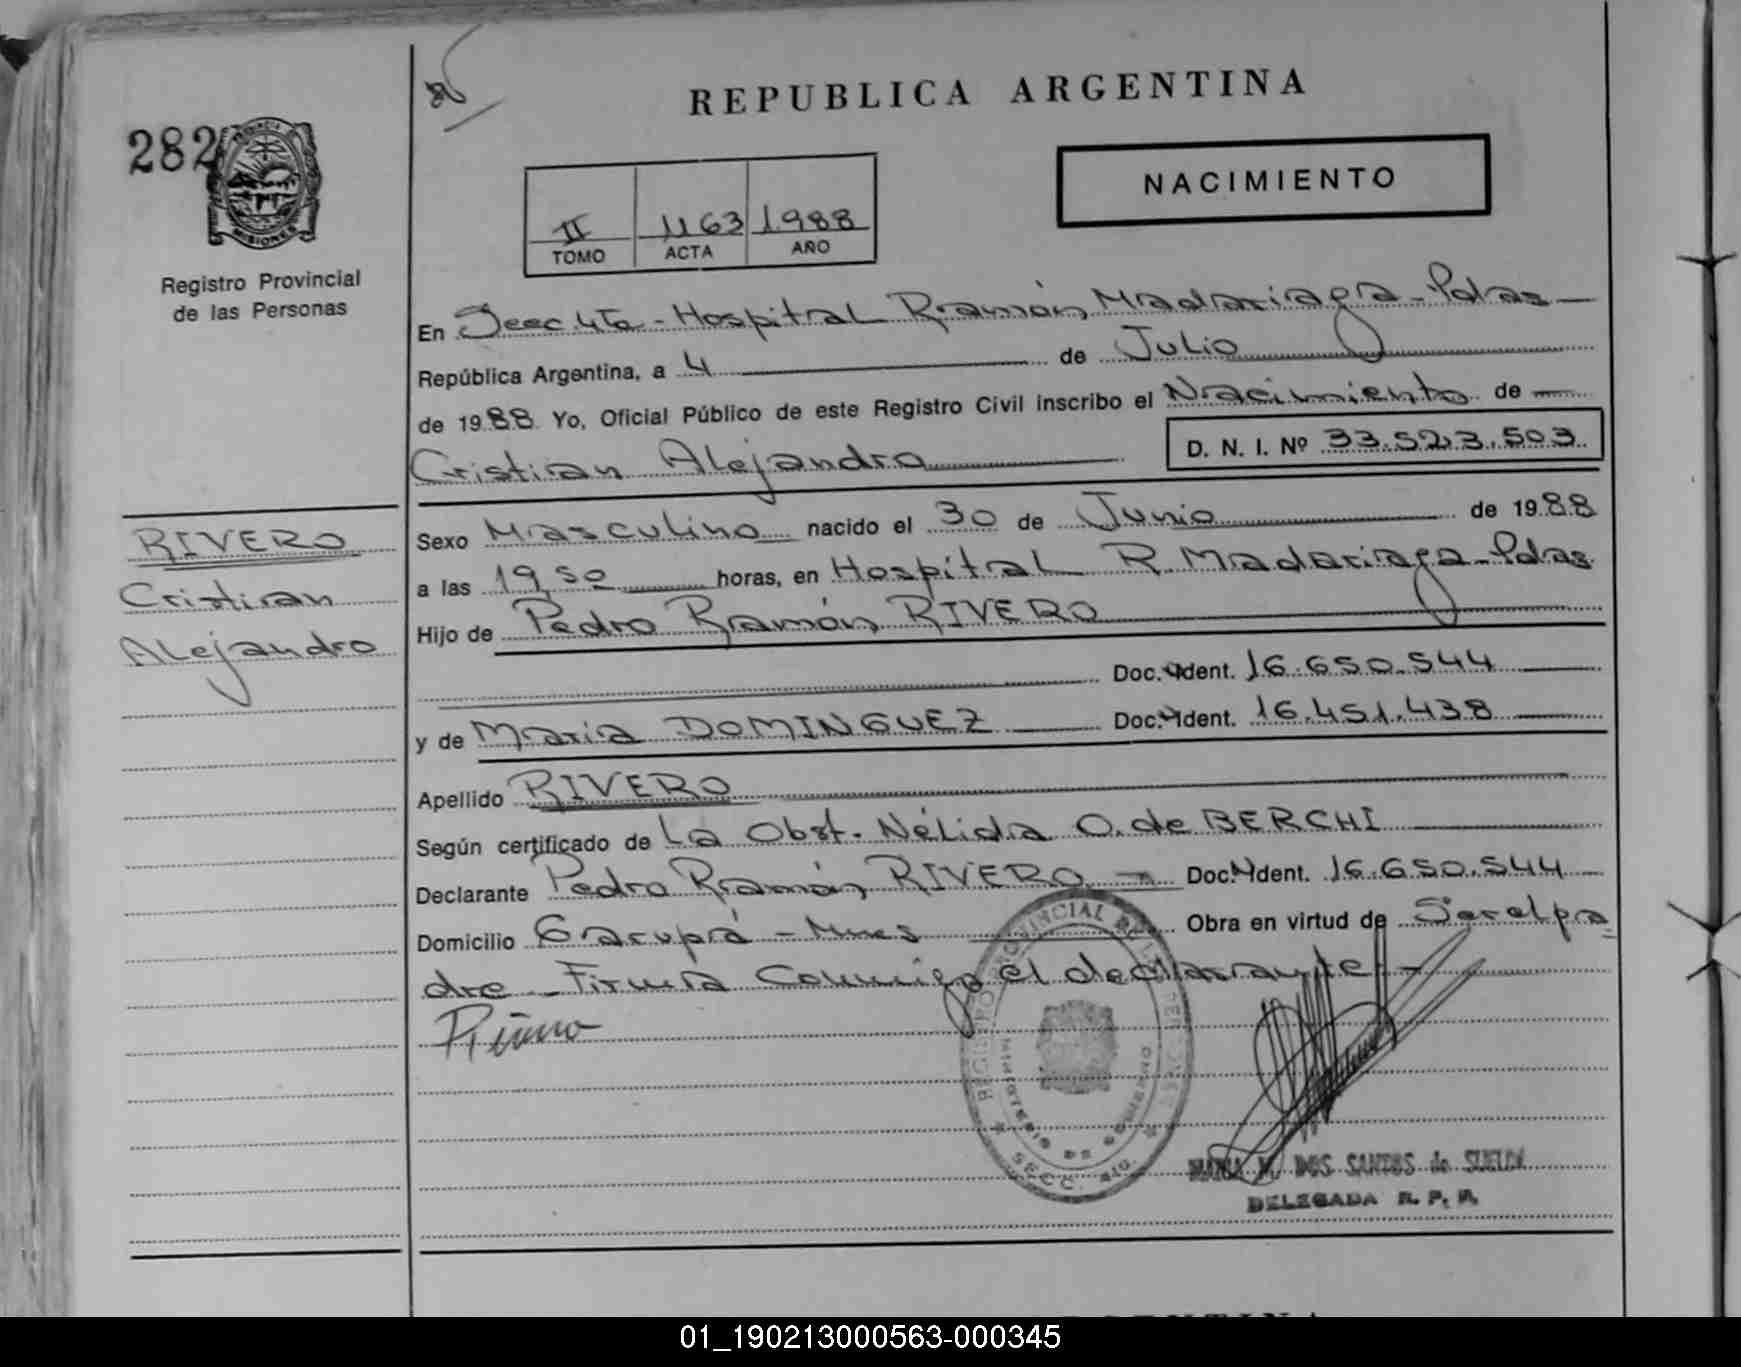 REPUBLICA ARGENTINA
282
PROVINCIA DE
MISIONES
Registro Provincial
de las Personas
NACIMIENTO
II 1163 1.988
TOMO ACTA AÑO
En Secc 4ta - Hospital Ramón Madariaga - Pdas -
República Argentina, a 4 de Julio
de 1988 Yo, Oficial Público de este Registro Civil inscribo el Nacimiento de
Cristian Alejandro
D. N. I. Nº 33.523.503
RIVERO
Cristian
Alejandro
Sexo Masculino nacido el 30 de Junio de 1988
a las 19,50 horas, en Hospital R. Madariaga - Pdas.
Hijo de Pedro Ramón RIVERO
Doc. Ident. 16.650.544
y de María DOMINGUEZ Doc. Ident. 16.451.438
Apellido RIVERO
Según certificado de La Obst. Nélida O. de BERCHI
Declarante Pedro Ramón RIVERO Doc. Ident. 16.650.544
Domicilio Garupá - Mnes Obra en virtud de Ser el pa
dre - Firma Conmigo el declarante -
REGISTRO PROVINCIAL DE LAS PERSONAS
MINISTERIO DE GOBIERNO
SECC. 4ta
MARIA DOS SANTOS de
DELEGADA R. P. P.
01_190213000563-000345